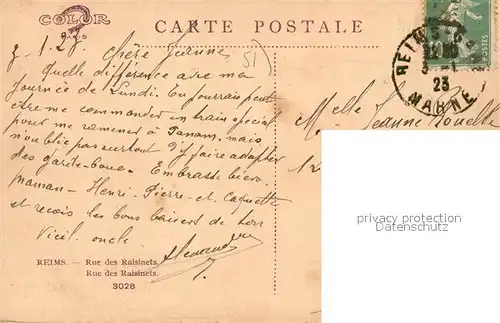 COLOR
CARTE POSTALE
51
REIMS
23
MARNE
POSTES
8-1.23. Chère Jeanne
Quelle différence avec ma
journée de Lundi. Tu pourrais peut
être me commander un train spécial
pour me ramener à Panam, mais
n'oublie pas surtout d'y faire adapter
des garde-boue. Embrasse bien
maman - Henri - Pierre et
et reçois les bons baisers de ton
Vieil oncle
Melle Jeanne
12
privacy protection
Datenschutz
REIMS. — Rue des Raisinets.
Rue des Raisinets.
3028